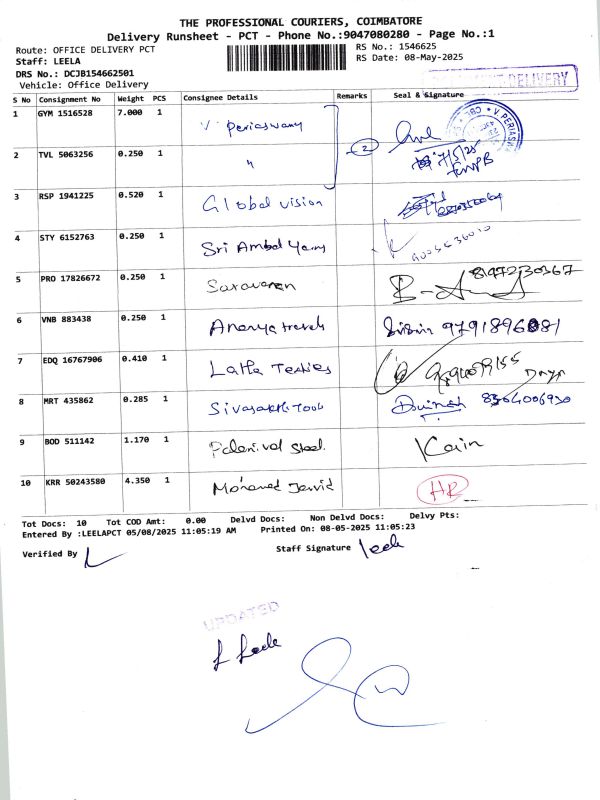 THE PROFESSIONAL COURIERS, COIMBATORE
Delivery Runsheet - PCT - Phone No.:9047080280 - Page No.:1
Route: OFFICE DELIVERY PCT
RS No.: 1546625
Staff: LEELA
RS Date: 08-May-2025
DRS No.: DCJB154662501
DELIVERY
Vehicle: Office Delivery
S No Consignment No Weight PCS Consignee Details Remarks Seal & Signature
1 GYM 1516528 7.000 1 V. Periaswamy
2 TVL 5063256 0.250 1 "
2
3 RSP 1941225 0.520 1 Global vision
4 STY 6152763 0.250 1 Sri Ambal
5 PRO 17826672 0.250 1 Saravanan
6 VNB 883438 0.250 1 Ananya travels 9791896081
7 EDQ 16767906 0.410 1 Latha
8 MRT 435862 0.285 1 Sivasakthi Tools 8364006930
9 BOD 511142 1.170 1 Palanivel Steel
10 KRR 50243580 4.350 1 Mohamed HR
Tot Docs: 10 Tot COD Amt: 0.00 Delvd Docs: Non Delvd Docs: Delvy Pts:
Entered By :LEELAPCT 05/08/2025 11:05:19 AM Printed On: 08-05-2025 11:05:23
Verified By
Staff Signature leela
UPDATED